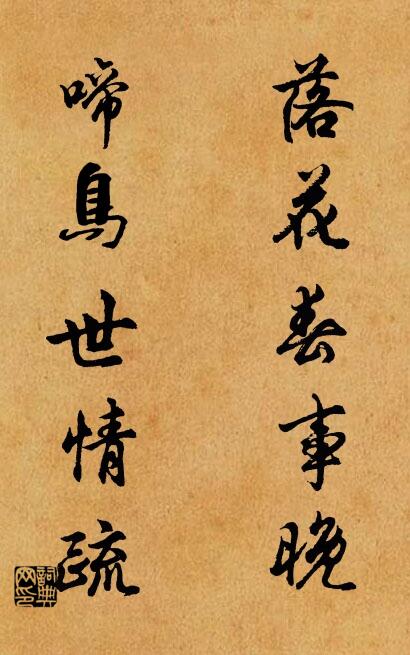 落花春事晚
啼鳥世情疏
詞典网印